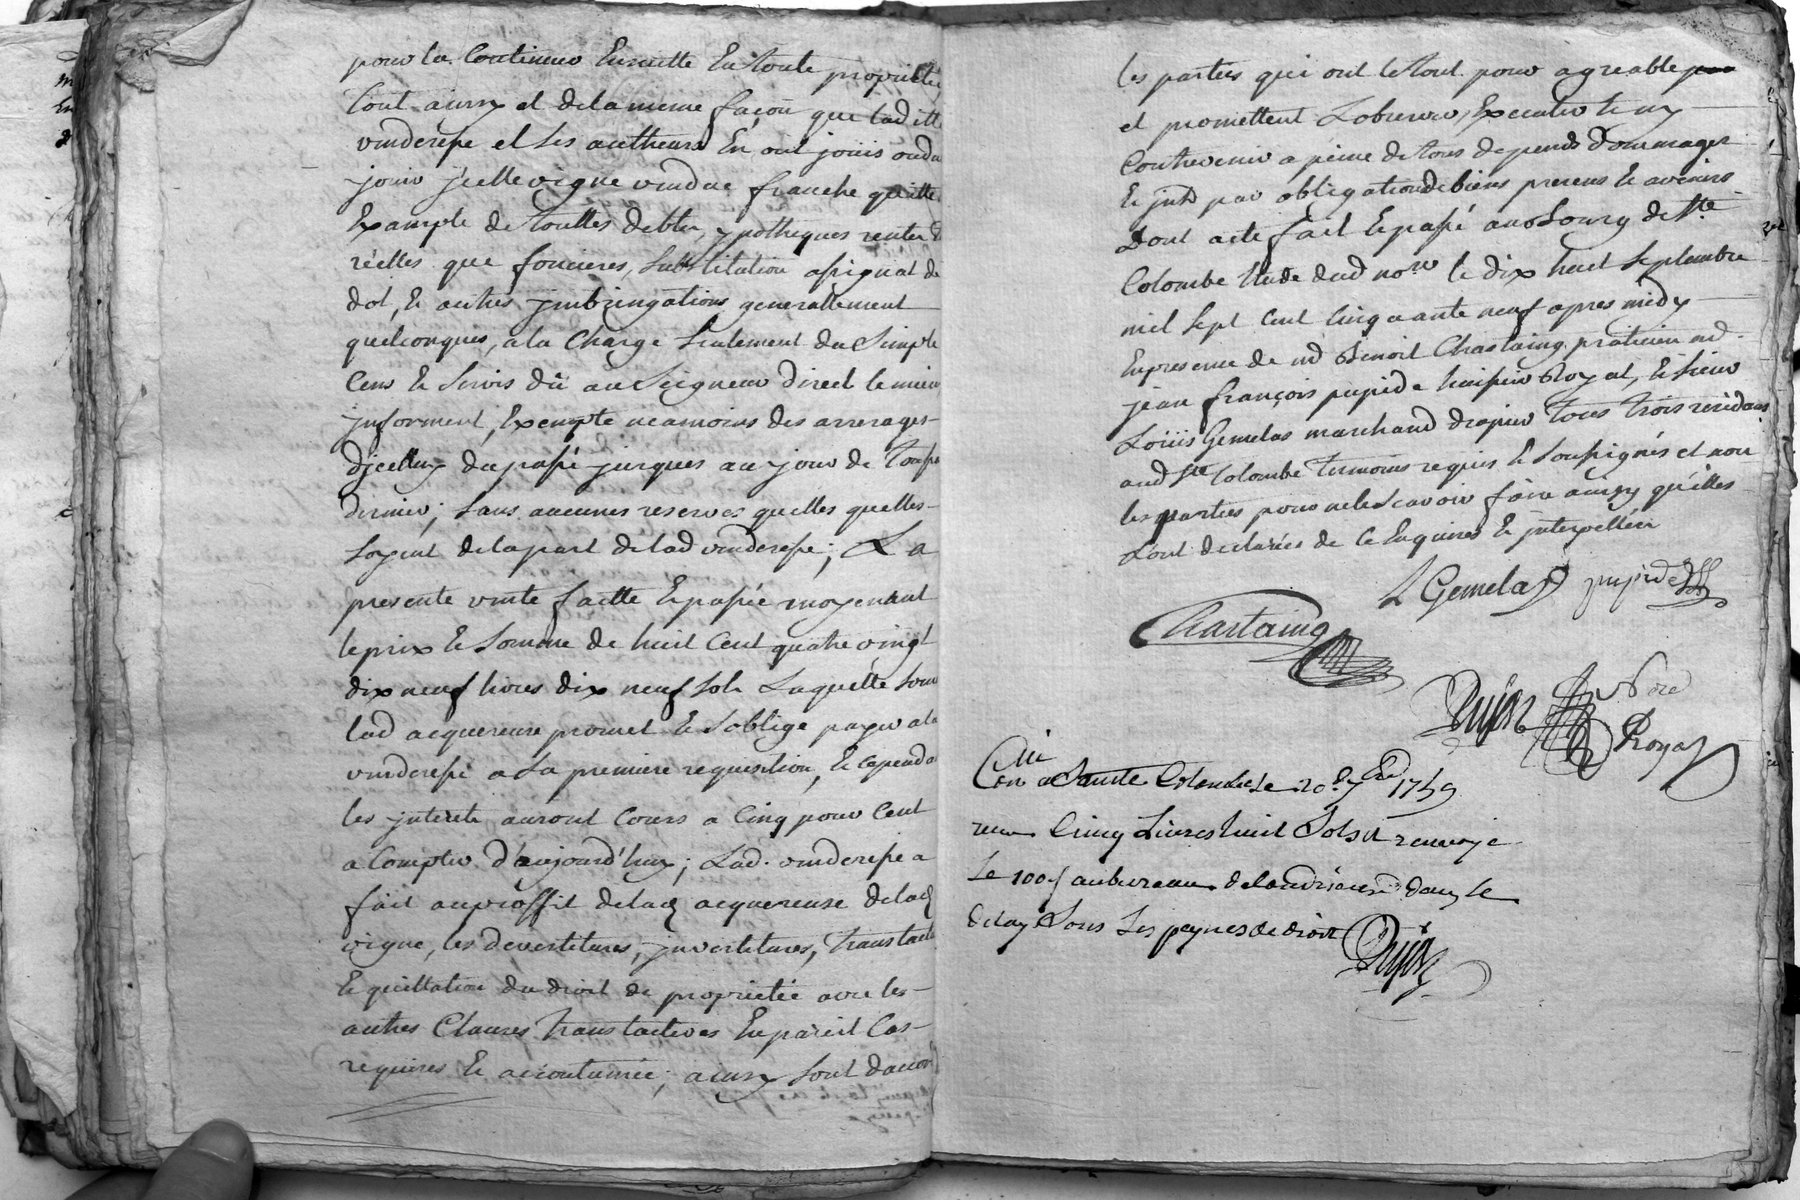 pour les Contenues Ensuitte En toute propriété
tout ainsy et de la meme façon que lad itte
venderesse et ses autheurs En ont joüis ou dû
jouir jcelle vigne vendue franche quitte
Exampte de touttes debtes, ypotheques rentes
réelles que foncieres, substitution assignat de
dot, & autres jmbringations generallement
quelconques, a la Charge seulement du simple
Cens & servis dû au seigneur direct le mieux
jnforment, Exempte neamoins des arrerages
djcelluy du passé jusques au jour de
dernier; sans aucunes reserves quelles quelles
soyent de la part de lad venderesse; La
presente vente faitte & passée moyenant
le prix & somme de huit Cent quatre vingt
dix neuf livres dix neuf sols Laquelle somme
lad acquereuse promet & s'oblige payer a la
venderesse a La premiere requisition, & cependa
les jnterets auront Cours a Cinq pour Cent
a Compter d'aujourd'huy; Lad. venderesse a
fait au proffit de lad acquereuse de lad
vigne, les devestitures, jnvestitures, translat
& quittation du droit de proprietée avec les
autres Clauses translatives En pareil Cas
requises & accoutumée; ainsy sont d'accord
les parties qui ont le tout pour agreable
et promettent Lobserver, Executer & ny
Contrevenir a peine de tous depends dommages
& jnts par obligation de biens presens & avenirs
Dont acte fait & passé au Bourg de Ste
Colombe Etude dud nore le dix huit septembre
mil sept Cent Cinquante neuf apres midy
En presence de md Benoit Chastaing praticien md
jean françois pupide huissier Royal, & sieur
Loüis Gemelas marchand drapier tous trois residans
aud Ste Colombe temoins requis & soussignés et non
les parties pour ne le scavoir faire ainsy qu'elles
sont declarées de ce Enquises & jnterpellées
L Gemelas pupide
Chastaing
Dujast nore
Royal
Con lé a Sainte Colombe Le 20e 7bre 1759
reçu Cinq Livres huit Sols et renvoyé
Le 100e au bureau de dans le
delay Sous Les peynes de droit
Dujast